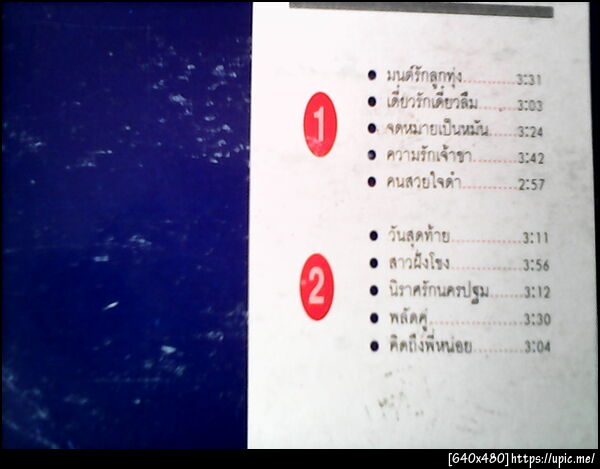 1
มนต์รักลูกทุ่ง............3:31
เดี๋ยวรักเดี๋ยวลืม..........3:03
จดหมายเป็นหมัน........3:24
ความรักเจ้าขา...........3:42
คนสวยใจดำ.............2:57
2
วันสุดท้าย................3:11
สาวฝั่งโขง................3:56
นิราศรักนครปฐม........3:12
พลัดคู่....................3:30
คิดถึงพี่หน่อย............3:04
[640x480]https://upic.me/